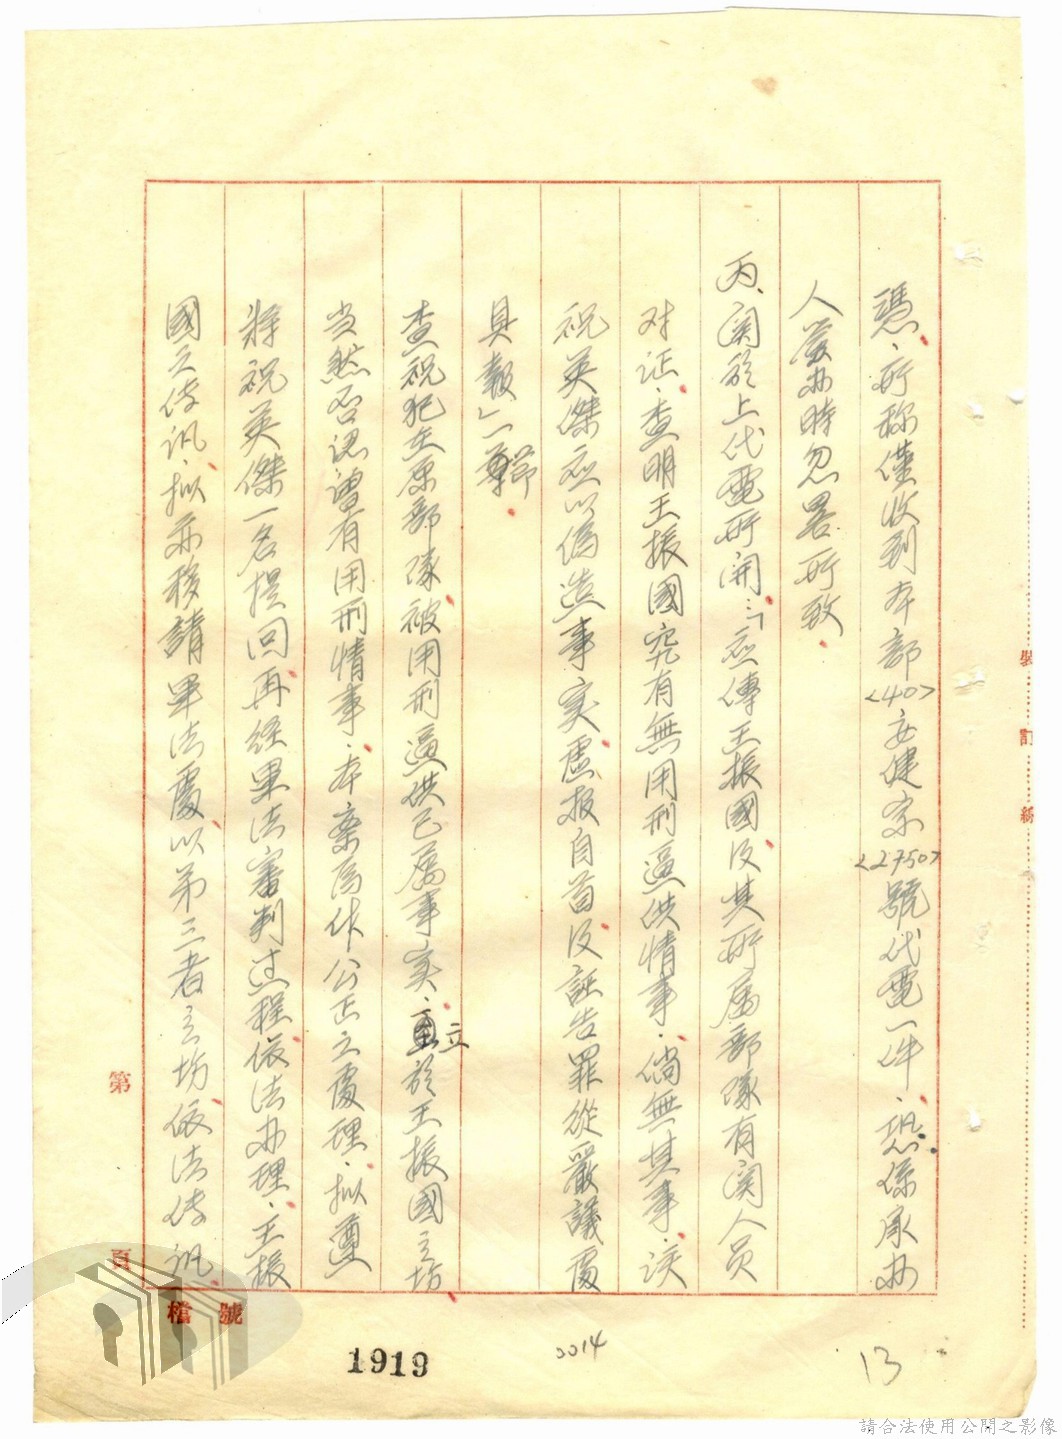 憑、所称僅收到本部<40>安健宗<2750>號代電一件、恐係承办
人簽办時忽畧所致、
丙、関於上代電所開：「应傳王振國及其所屬部隊有関人員
对证、查明王振國究有無用刑逼供情事、倘無其事、該
祝英傑应以偽造事实虛报自首及誣告罪從嚴議處
具報」一節、
查祝犯在原部隊被用刑逼供已屬事实、立於王振國立坊
当然否認曾有用刑情事、本案為作公正之處理、拟遵
將祝英傑一名提回再经軍法審判过程依法办理、王振
國之傳訊、拟亦移請軍法處以第三者立坊依法傳訊、
裝訂線
第
頁
檔號
1919
0014
13
請合法使用公開之影像